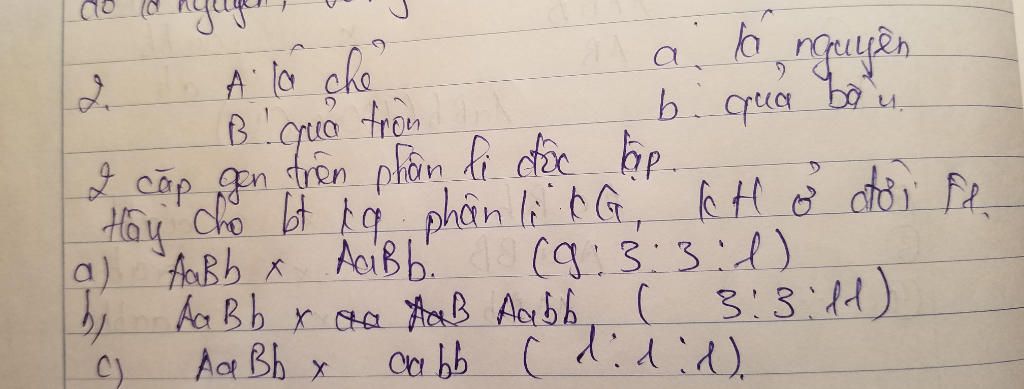 do lá nguyên,
2. A: lá chẻ a: lá nguyên
B: quả tròn b: quả bầu.
2 cặp gen trên phân li độc lập.
Hãy cho bt kq phân li KG, KH ở đời F1.
a) AaBb x AaBb. (9:3:3:1)
b) AaBb x aa AaB Aabb ( 3:3:11)
c) AaBb x aabb (1:1:1).